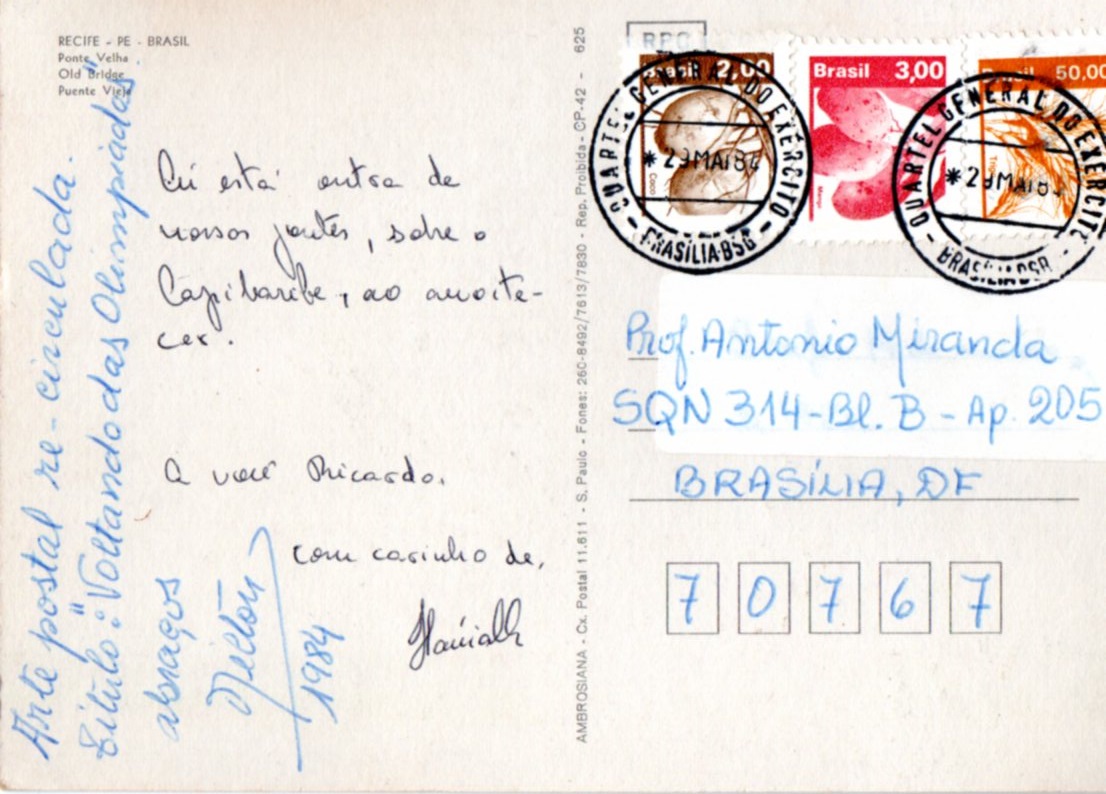 RECIFE - PE - BRASIL
Ponte Velha
Old Bridge
Puente Vieja
está outra de
nossas pontes, sobre o
Capibaribe, ao anoite-
cer.
A você Ricardo.
com carinho de,
Arte postal re-circulada.
Título: "Voltando das Olimpíadas"
abraços
1984
AMBROSIANA - Cx. Postal 11.611 - S. Paulo - Fones: 260-8492/7613/7830 - Rep. Proibida - CP-42 - 625
RPC
Brasil 2,00
Coco
Brasil 3,00
Brasil 50,00
QUARTEL GENERAL DO EXERCITO
*29MAI84
BRASÍLIA-BSB
QUARTEL GENERAL DO EXERCITE
BRASÍLIA-BSB
Prof. Antonio Miranda
SQN 314-Bl. B - Ap. 205
BRASÍLIA, DF
7 0 7 6 7